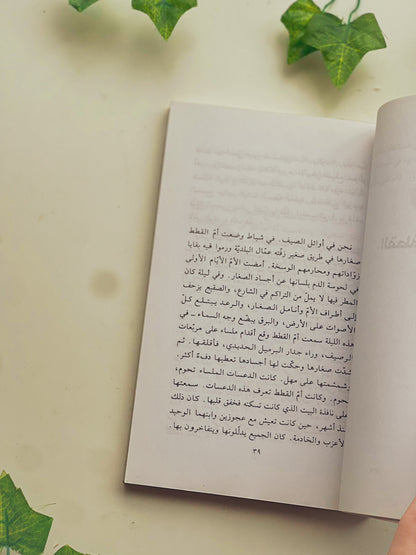 نحن في أوائل الصيف. في شباط وضعت أمّ القطط
صغارها في طريق صغير زفّته عمّال البلديّة ورموا فيه بقايا
زوّاداتهم ومحارمهم الوسخة. أمضت الأمّ الأيّام الأولى
في لحوسة الدم بلسانها عن أجساد الصغار. وفي ليلة كان
المطر فيها لا يملّ من التراكم في الشارع، والصقيع يزحف
إلى أطراف الأمّ وأنامل الصغار، والرعد يبتلع كلّ
الأصوات على الأرض، والبرق يبضّع وجه السماء ـ في
هذه الليلة سمعت أمّ القطط وقع أقدام ملساء على مربّعات
الرصيف، وراء جدار البرميل الحديديّ، فأقلقها. ثم
شدّت صغارها وحكّت لها أجسادها تعطيها دفءً أكثر.
وشمشمتها على مهل. كانت الدعسات الملساء تحوم،
تحوم. وكانت أمّ القطط تعرف هذه الدعسات. سمعتها
على نافذة البيت الذي كانت تسكنه فخفق قلبها. كان ذلك
منذ أشهر، حين كانت تعيش مع عجوزين وابنهما الوحيد
الأعزب والخادمة. كان الجميع يدلّلونها ويتفاخرون بها.
٣٩